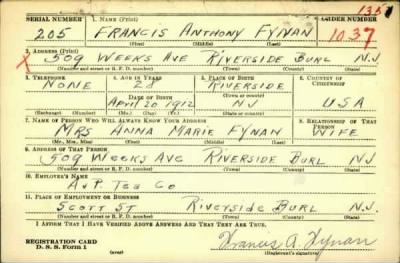 1351
SERIAL NUMBER 1. NAME (Print) ORDER NUMBER
205 FRANCIS ANTHONY FYNAN 1037
(First) (Middle) (Last)
2. ADDRESS (Print)
X 509 WEEKS AVE RIVERSIDE BURL N.J.
(Number and street or R. F. D. number) (Town) (County) (State)
3. TELEPHONE 4. AGE IN YEARS 5. PLACE OF BIRTH 6. COUNTRY OF CITIZENSHIP
NONE 28 RIVERSIDE
DATE OF BIRTH
April 20 1912 NJ USA
(Exchange) (Number) (Mo.) (Day) (Yr.) (State or country)
7. NAME OF PERSON WHO WILL ALWAYS KNOW YOUR ADDRESS 8. RELATIONSHIP OF THAT PERSON
MRS ANNA MARIE FYNAN WIFE
(Mr., Mrs., Miss) (First) (Middle) (Last)
9. ADDRESS OF THAT PERSON
509 WEEKS AVE RIVERSIDE BURL N.J.
(Number and street or R. F. D. number) (Town) (County) (State)
10. EMPLOYER'S NAME
A+P. TEA CO
11. PLACE OF EMPLOYMENT OR BUSINESS
SCOTT ST RIVERSIDE BURL N.J.
(Number and street or R. F. D. number) (Town) (County) (State)
I AFFIRM THAT I HAVE VERIFIED ABOVE ANSWERS AND THAT THEY ARE TRUE.
REGISTRATION CARD
D. S. S. Form 1 (over) Francis A. Fynan
(Registrant's signature)